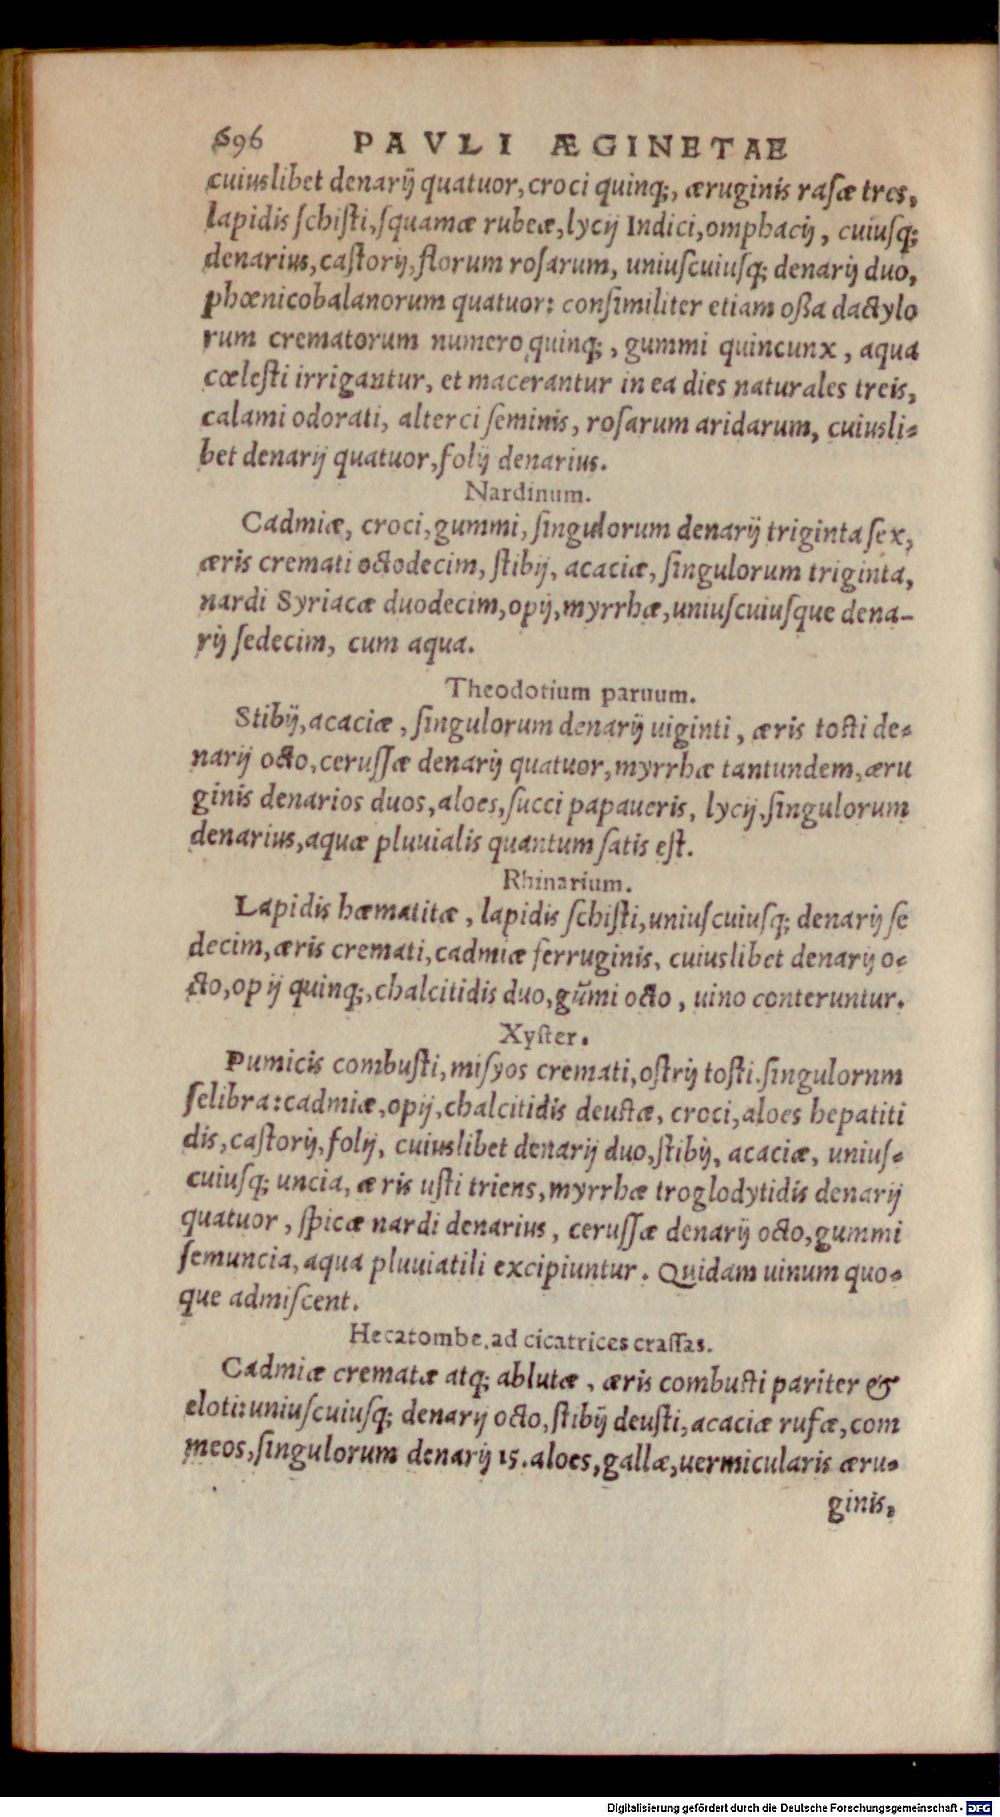 696 PAVLI ÆGINETAE
cuiuslibet denarij quatuor, croci quinq;, æruginis rasæ tres,
lapidis schisti, squamæ rubeæ, lycij Indici, omphacij, cuiusq;
denarius, castorij, florum rosarum, uniuscuiusq; denarij duo,
phœnicobalanorum quatuor: consimiliter etiam ossa dactylo
rum crematorum numero quinq;, gummi quincunx, aqua
cœlesti irrigantur, et macerantur in ea dies naturales treis,
calami odorati, alterci seminis, rosarum aridarum, cuiusli-
bet denarij quatuor, folij denarius.
Nardinum.
Cadmiæ, croci, gummi, singulorum denarij triginta sex,
æris cremati octodecim, stibij, acaciæ, singulorum triginta,
nardi Syriacæ duodecim, opij, myrrhæ, uniuscuiusque dena-
rij sedecim, cum aqua.
Theodotium paruum.
Stibij, acaciæ, singulorum denarij uiginti, æris tosti de-
narij octo, cerussæ denarij quatuor, myrrhæ tantundem, æru
ginis denarios duos, aloes, succi papaueris, lycij, singulorum
denarius, aquæ pluuialis quantum satis est.
Rhinarium.
Lapidis hæmatitæ, lapidis schisti, uniuscuiusq; denarij se
decim, æris cremati, cadmiæ ferruginis, cuiuslibet denarij o-
cto, opij quinq;, chalcitidis duo, gūmi octo, uino conteruntur.
Xyster.
Pumicis combusti, misyos cremati, ostrij tosti. singulornm
selibra: cadmiæ, opij, chalcitidis deustæ, croci, aloes hepatiti
dis, castorij, folij, cuiuslibet denarij duo, stibij, acaciæ, unius-
cuiusq; uncia, æris usti triens, myrrhæ troglodytidis denarij
quatuor, spicæ nardi denarius, cerussæ denarij octo, gummi
semuncia, aqua pluuiatili excipiuntur. Quidam uinum quo-
que admiscent.
Hecatombe, ad cicatrices crassas.
Cadmiæ crematæ atq; ablutæ, æris combusti pariter &
eloti: uniuscuiusq; denarij octo, stibij deusti, acaciæ rufæ, com
meos, singulorum denarij 15. aloes, gallæ, uermicularis æru-
ginis,
Digitalisierung gefördert durch die Deutsche Forschungsgemeinschaft - DFG